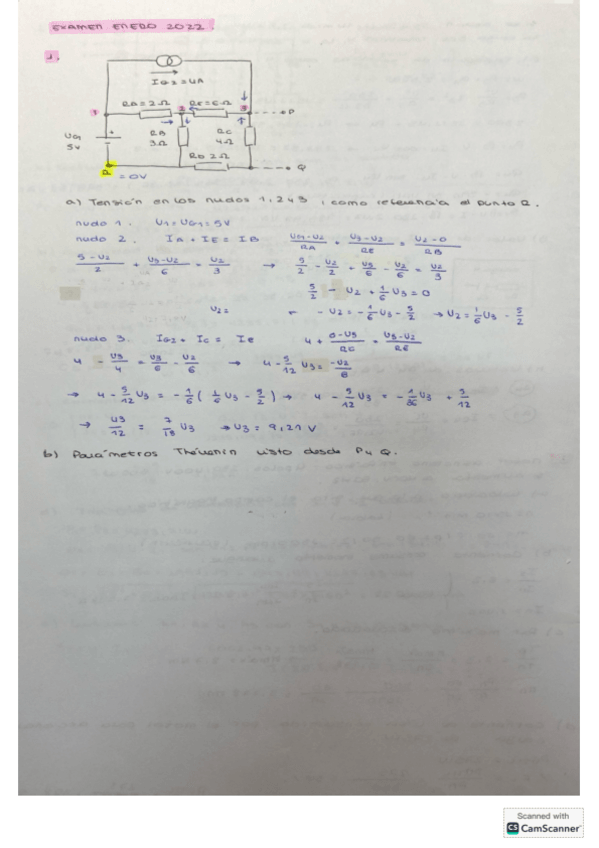 EXAMEN ENERO 2022.
1.
IG2 = 4A
RA = 2Ω
RE = 6Ω
1
2
3
P
UG1
5V
+
RB
3Ω
RC
4Ω
RD 2Ω
Q
= 0V
a) Tensión en los nudos 1, 2 y 3, como referencia el punto Q.
nudo 1. U1 = UG1 = 5V
nudo 2. IA + IE = IB (UG1 - U2)/RA + (U3 - U2)/RE = (U2 - 0)/RB
(5 - U2)/2 + (U3 - U2)/6 = U2/3 → 5/2 - U2/2 + U3/6 - U2/6 = U2/3
5/2 - U2 + 1/6 U3 = 0
U2 = - U2 = -1/6 U3 - 5/2 → U2 = 1/6 U3 - 5/2
nudo 3. IG2 + IC = IE 4 + (0 - U3)/RC = (U3 - U2)/RE
4 - U3/4 = U3/6 - U2/6 → 4 - 5/12 U3 = -U2/6
→ 4 - 5/12 U3 = -1/6 (1/6 U3 - 5/2) → 4 - 5/12 U3 = -1/36 U3 + 5/12
→ U3 = 9,21 V
b) Parámetros Thevenin visto desde P y Q.
Scanned with
CS CamScanner